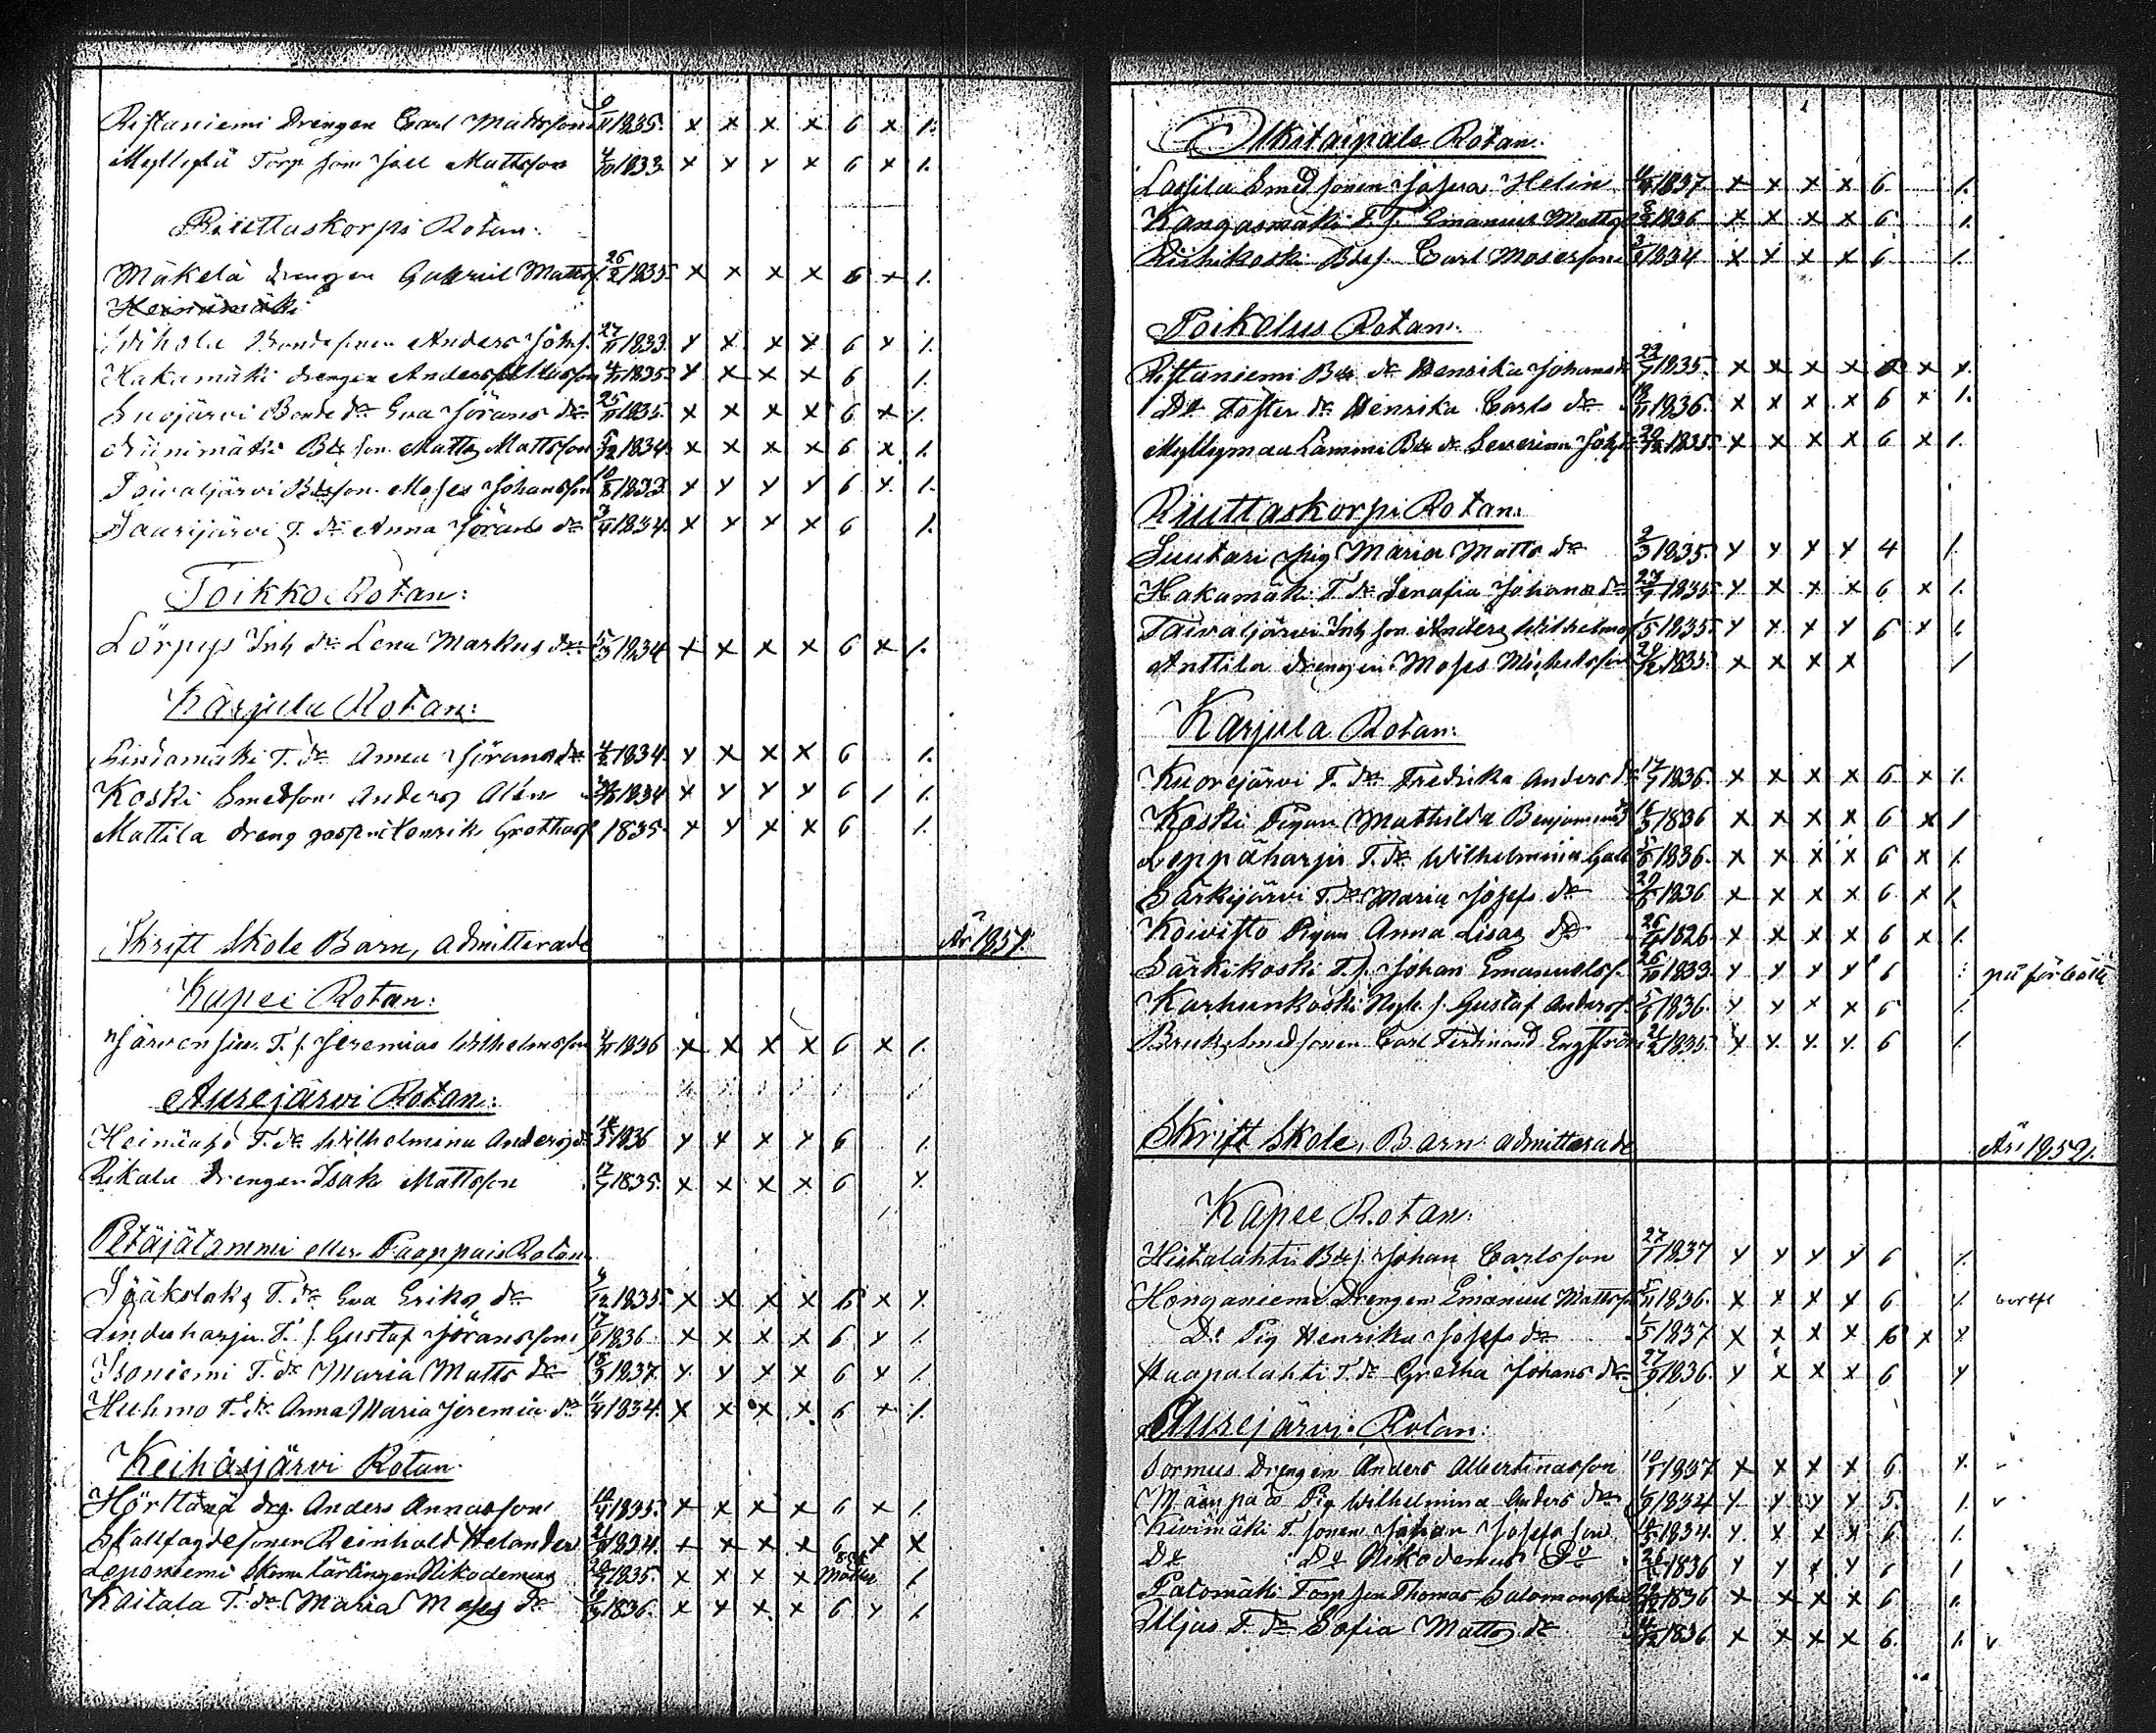 Riftaniemi Drengen Carl Mattsson 9/11 1835. x x x x 6 x 1.
Myllylä Torp son Joel Mattsson 4/10 1833 x x x x 6 x 1.
Riuttaskorpi Rotan.
Mäkelä drengen Gabriel Matts 26/2 1835. x x x x 6 x 1.
Heinämäki
Bondesonen Anders Johs. 27/11 1833. x x x x 6 x 1.
Hakamäki drengen Anders 1835. x x x x 6 1.
Suojärvi Bonde dr Eva Jörans dr 25/11 1835. x x x x 6 x 1.
Niinimäki Bde son Matts Mattsson 5/12 1834. x x x x 6 x 1.
Taivaljärvi Bdeson Moses Johansson 10/8 1833 x x x x 6 x 1.
Saarijärvi T. dr Anna Jörans dr 3/4 1834. x x x x 6 1.
Toikko Rotan:
Lörpys Inh dr Lena Markus dr 5/3 1834 x x x x 6 x 1.
Karjula Rotan:
Lindamäki T. dr Anna Jörans dr 1834. x x x x 6 1.
Koski Smedson Anders Alén 1834 x x x x 6 1 1.
Mattila dreng Henrik 1835. x x x x 6 1.
Skrift Skole Barn, admitterade År 1851.
Kapee Rotan:
Järvensivu T. s. Jeremias Wilhelmsson 4/11 1836 x x x x 6 x 1.
Aurejärvi Rotan:
Heinäaho T. dr Wilhelmina Anders d 14/5 1836 x x x x 6 1.
Rikala Drengen Isak Mattsson 17/7 1835. x x x x 6 x.
Petäjälammi eller Paappais Rotan
Jääkslaks T. dr Eva Eriks dr 4/12 1835. x x x x 6 x x.
Linduharju T. s. Gustaf Jöransson 17/6 1836 x x x x 6 x 1.
Isoniemi T. dr Maria Matts dr 18/3 1837. x x x x 6 x 1.
Huhmo T. dr Anna Maria Jeremia dr 11/4 1834. x x x x 6 x 1.
Keihäsjärvi Rotan.
Hörttänä drg. Anders Annasson 10/4 1835. x x x x 6 x 1.
Skallfogdesonen Reinhold Helander 21/9 1834. x x x x 6 x x
Leponiemi lärlingen Nikodemus 1835. x x x x 1.
Kaitala T. dr Maria Moses dr 1836. x x x x 6 x 1.
Olkitaipale Rotan.
Lassila Smed sonen Josua Helin 1837 x x x x 6 1.
Kangasmäki T. s. Emanuel Matts 8/8 1836 x x x x 6 1.
Riihikoski Bdes. Carl Mosesson 3/2 1834 x x x x 6 1.
Poikelus Rotan.
Riftaniemi Bde dr Henrika Johans d 22/7 1835. x x x x 6 x x.
Do Foster dr Henrika Carls dr 18/11 1836. x x x x 6 x 1.
Myllymaa Lammi Bde dr Severina Johs 20/12 1835. x x x x 6 x 1.
Riuttaskorpi Rotan.
Suutari pig Maria Matts dr 2/3 1835. x x x x 4 1.
Hakamäki T. dr Serafia Johans dr 23/7 1835 x x x x 6 x 1.
Taivaljärvi Inh son Anders Wilhelms 1/5 1835 x x x x 6 x 1.
Anttila drengen Moses Michelsson 29/12 1835. x x x x 1
Karjula Rotan:
Kuorejärvi T. dr Fredrika Anders d 17/7 1836. x x x x 6. x 1.
Koski Pigan Mathilda Benjamins 16/3 1836 x x x x 6 x 1
Leppäharju T. dr Wilhelmina Gab 5/6 1836. x x x x 6 x 1.
Särkijärvi T. dr Maria Josefs dr 20/6 1836 x x x x 6. x 1.
Koivisto Pigan Anna Lisas dr 26/4 1826. x x x x 6 x 1.
Särkikoski T. s. Johan Emanuelss. 26/10 1833. x x x x 6 på förbätt
Karhunkoski Nyb. s. Gustaf Anderss. 5/5 1836. x x x x 6 1.
Bruks Smedsonen Carl Ferdinand Engström 21/2 1835. x x x x 6 1.
Skrift Skole Barn admitterade År 1852.
Kapee Rotan.
Hietalahti Bde s. Johan Carlsson 27/1 1837 x x x x 6 1.
Honganiemi Drengen Emanuel Mattss 5/11 1836. x x x x 6 1.
Do Pig Henrika Josefs dr 1/5 1837 x x x x 6 x x
Haapalahti T. dr Gretha Johans dr 27/9 1836. x x x x 6 x
Aurejärvi Rotan.
Sormus Drengen Anders Albertinasson 10/1 1837 x x x x 6. x.
Pig Wilhelmina Anders dr 1834 x x x x 5. 1. v
Kivimäki T. sonen Johan Josefsson 1834. x x x x 6 1.
Do Do Nikodemus Do 26/6 1836 x x x x 6 1.
Palomäki Torp son Thomas Salomonsson 22/12 1836 x x x x 6 1.
Uljas T. dr Sofia Matts dr 1836. x x x x 6. 1. v